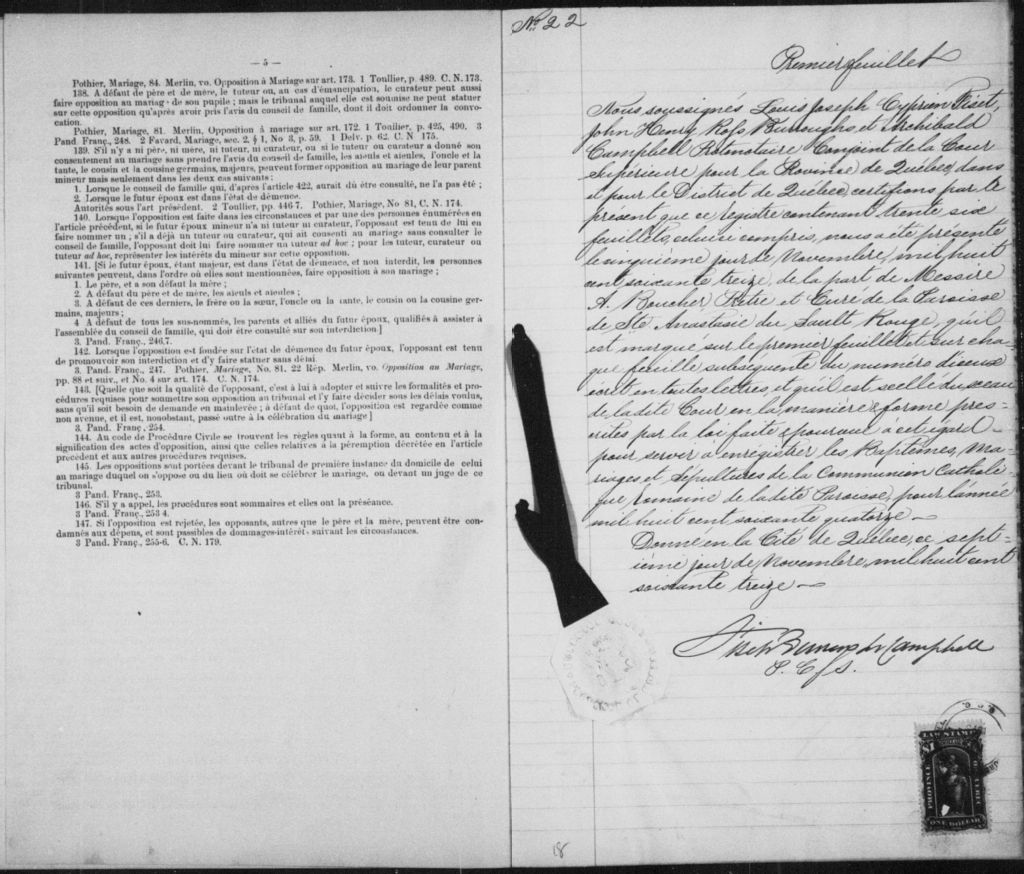 — 5 —
Pothier, Mariage, 84. Merlin, vo. Opposition à Mariage sur art. 173. 1 Toullier, p. 489. C. N. 173.
138. A défaut de père et de mère, le tuteur ou, au cas d'émancipation, le curateur peut aussi
faire opposition au mariage de son pupile ; mais le tribunal auquel elle est soumise ne peut statuer
sur cette opposition qu'après avoir pris l'avis du conseil de famille, dont il doit ordonner la convo-
cation.
Pothier, Mariage, 81. Merlin, Opposition à mariage sur art. 172. 1 Toullier, p. 425, 490. 3
Pand. Franç., 248. 2 Favard, Mariage, sec. 2, § 1, No 3, p. 59. 1 Delv. p. 62. C. N 175.
139. S'il n'y a ni père, ni mère, ni tuteur, ni curateur, ou si le tuteur ou curateur a donné son
consentement au mariage sans prendre l'avis du conseil de famille, les aïeuls et aïeules, l'oncle et la
tante, le cousin et la cousine germains, majeurs, peuvent former opposition au mariage de leur parent
mineur mais seulement dans les deux cas suivants :
1. Lorsque le conseil de famille qui, d'après l'article 422, aurait dû être consulté, ne l'a pas été ;
2. Lorsque le futur époux est dans l'état de démence.
Autorités sous l'art présédent. 2 Toullier, pp. 446 7. Pothier, Mariage, No 81, C. N. 174.
140. Lorsque l'opposition est faite dans les circonstances et par une des personnes énumérées en
l'article précédent, si le futur époux mineur n'a ni tuteur ni curateur, l'opposant est tenu de lui en
faire nommer un ; s'il a déjà un tuteur ou curateur, qui ait consenti au mariage sans consulter le
conseil de famille, l'opposant doit lui faire nommer un tuteur ad hoc ; pour les tuteur, curateur ou
tuteur ad hoc, représenter les intérêts du mineur sur cette opposition.
141. [Si le futur époux, étant majeur, est dans l'état de démence, et non interdit, les personnes
suivantes peuvent, dans l'ordre où elles sont mentionnées, faire opposition à son mariage ;
1. Le père, et a son défaut la mère ;
2. A défaut du père et de mère, les aïeuls et aïeules ;
3. A défaut de ces derniers, le frère ou la sœur, l'oncle ou la tante, le cousin ou la cousine ger-
mains, majeurs ;
4 A défaut de tous les sus-nommés, les parents et alliés du futur époux, qualifiés à assister à
l'assemblée du conseil de famille, qui doit être consulté sur son interdiction.]
3. Pand. Franç., 246,7.
142. Lorsque l'opposition est fondée sur l'état de démence du futur époux, l'opposant est tenu
de promouvoir son interdiction et d'y faire statuer sans délai.
3. Pand. Franç., 247. Pothier, Mariage, No. 81. 22 Rép. Merlin, vo. Opposition au Mariage,
pp. 88 et suiv., et No. 4 sur art. 174. C. N. 174.
143. [Quelle que soit la qualité de l'opposant, c'est à lui à adopter et suivre les formalités et pro-
cédures requises pour soumettre son opposition au tribunal et l'y faire décider sous les délais voulus,
sans qu'il soit besoin de demande en mainlevée ; à défaut de quoi, l'opposition est regardée comme
non avenue, et il est, nonobstant, passé outre à la célébration du mariage]
3. Pand. Franç., 254.
144. Au code de Procédure Civile se trouvent les règles quant à la forme, au contenu et à la
signification des actes d'opposition, ainsi que celles relatives à la péremption décrétée en l'article
précédent et aux autres procédures requises.
145. Les oppositions sont portées devant le tribunal de première instance du domicile de celui
au mariage duquel on s'oppose ou du lieu où doit se célébrer le mariage, ou devant un juge de ce
tribunal.
3 Pand. Franç., 253.
146. S'il y a appel, les procédures sont sommaires et elles ont la préséance.
3 Pand. Franç., 253 4.
147. Si l'opposition est rejetée, les opposants, autres que le père et la mère, peuvent être con-
damnés aux dépens, et sont passibles de dommages-intérêts suivant les circonstances.
3 Pand. Franç., 255-6. C. N. 179.
No. 22
Premier feuillet
Nous soussignés Louis Joseph Cyprien Fiset,
John Henry Ross Burroughs, et Archibald
Campbell Protonotaire Conjoint de la Cour
Supérieure pour la Province de Québec, dans
et pour le District de Québec, certifions par le
présent que ce régistre contenant trente six
feuillets, celui ci compris, nous a été présenté
le cinquième jour de Novembre, mil huit
cent soixante treize, de la part de Messire
A. Boucher Ptre et Curé de la Paroisse
de Ste Anastasie du Sault Rouge, qu'il
est marqué sur le premier feuillet et sur cha-
que feuille subséquente du numéro d'iceux
écrit en toutes lettres, et qu'il est scellé du sceau
de la dite Cour en la manière & forme pres-
crites par la loi faite & pourvue a cet égard -
pour servir a enregistrer les Baptêmes, Ma-
riages et Sépultures de la Communion Catholi-
que romaine de la dite Paroisse, pour l'année
mil huit cent soixante quatorze —
Donné en la Cité de Québec, ce sept-
ième jour de Novembre, mil huit cent
soixante treize —
Fiset Burroughs & Campbell
P. C. S.
LAW STAMP
$1
PROVINCE OF QUEBEC
ONE DOLLAR
18